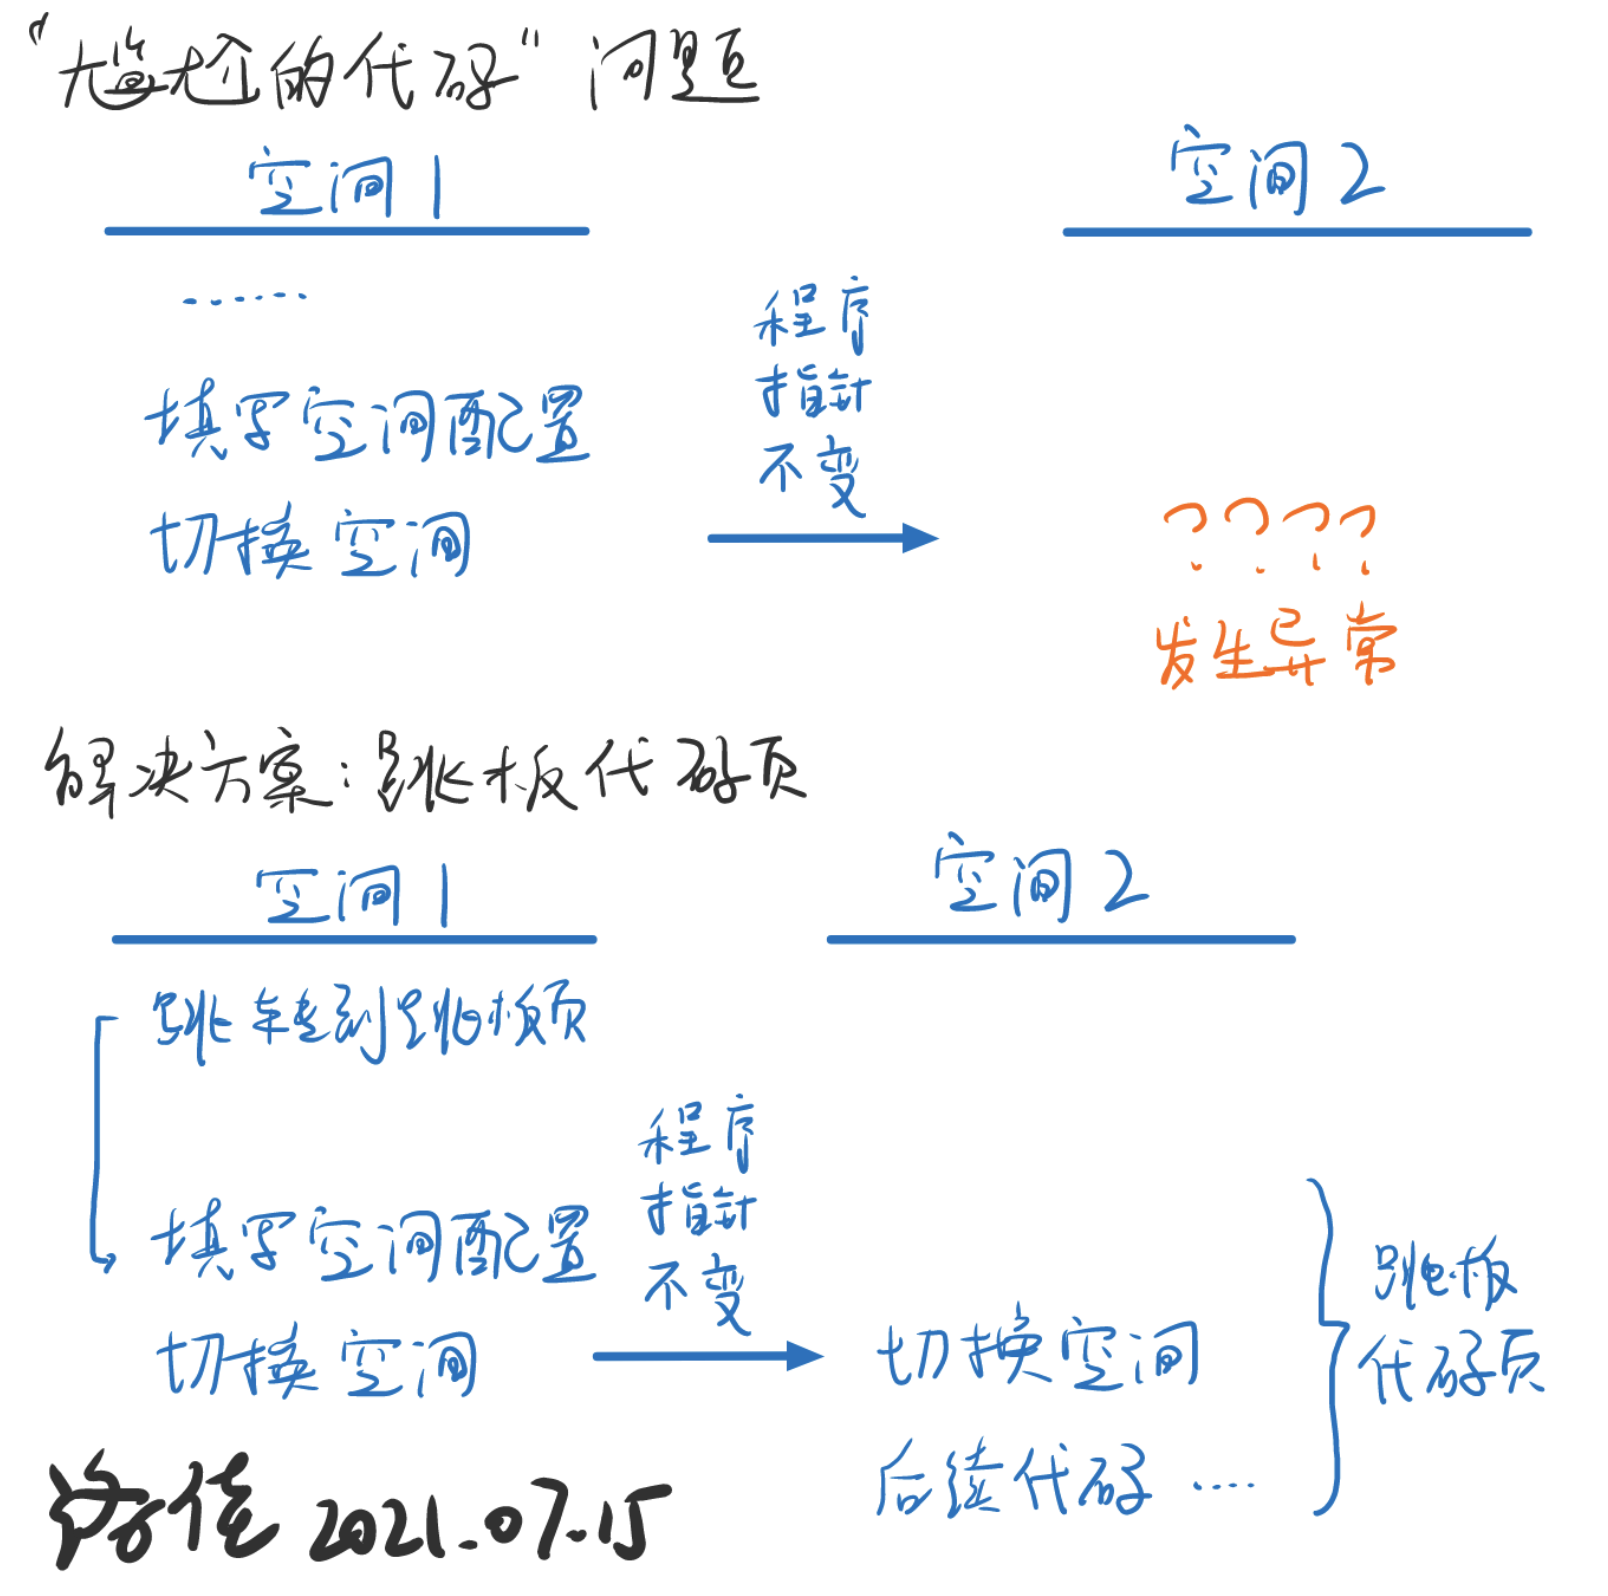 “尴尬的代码”问题
空间1
空间2
……
填写空间配置
切换空间
程序
指针
不变
????
发生异常
解决方案:跳板代码页
空间1
空间2
跳转到跳板页
填写空间配置
切换空间
程序
指针
不变
切换空间
后续代码 ….
跳板
代码页
洛佳 2021.07.15